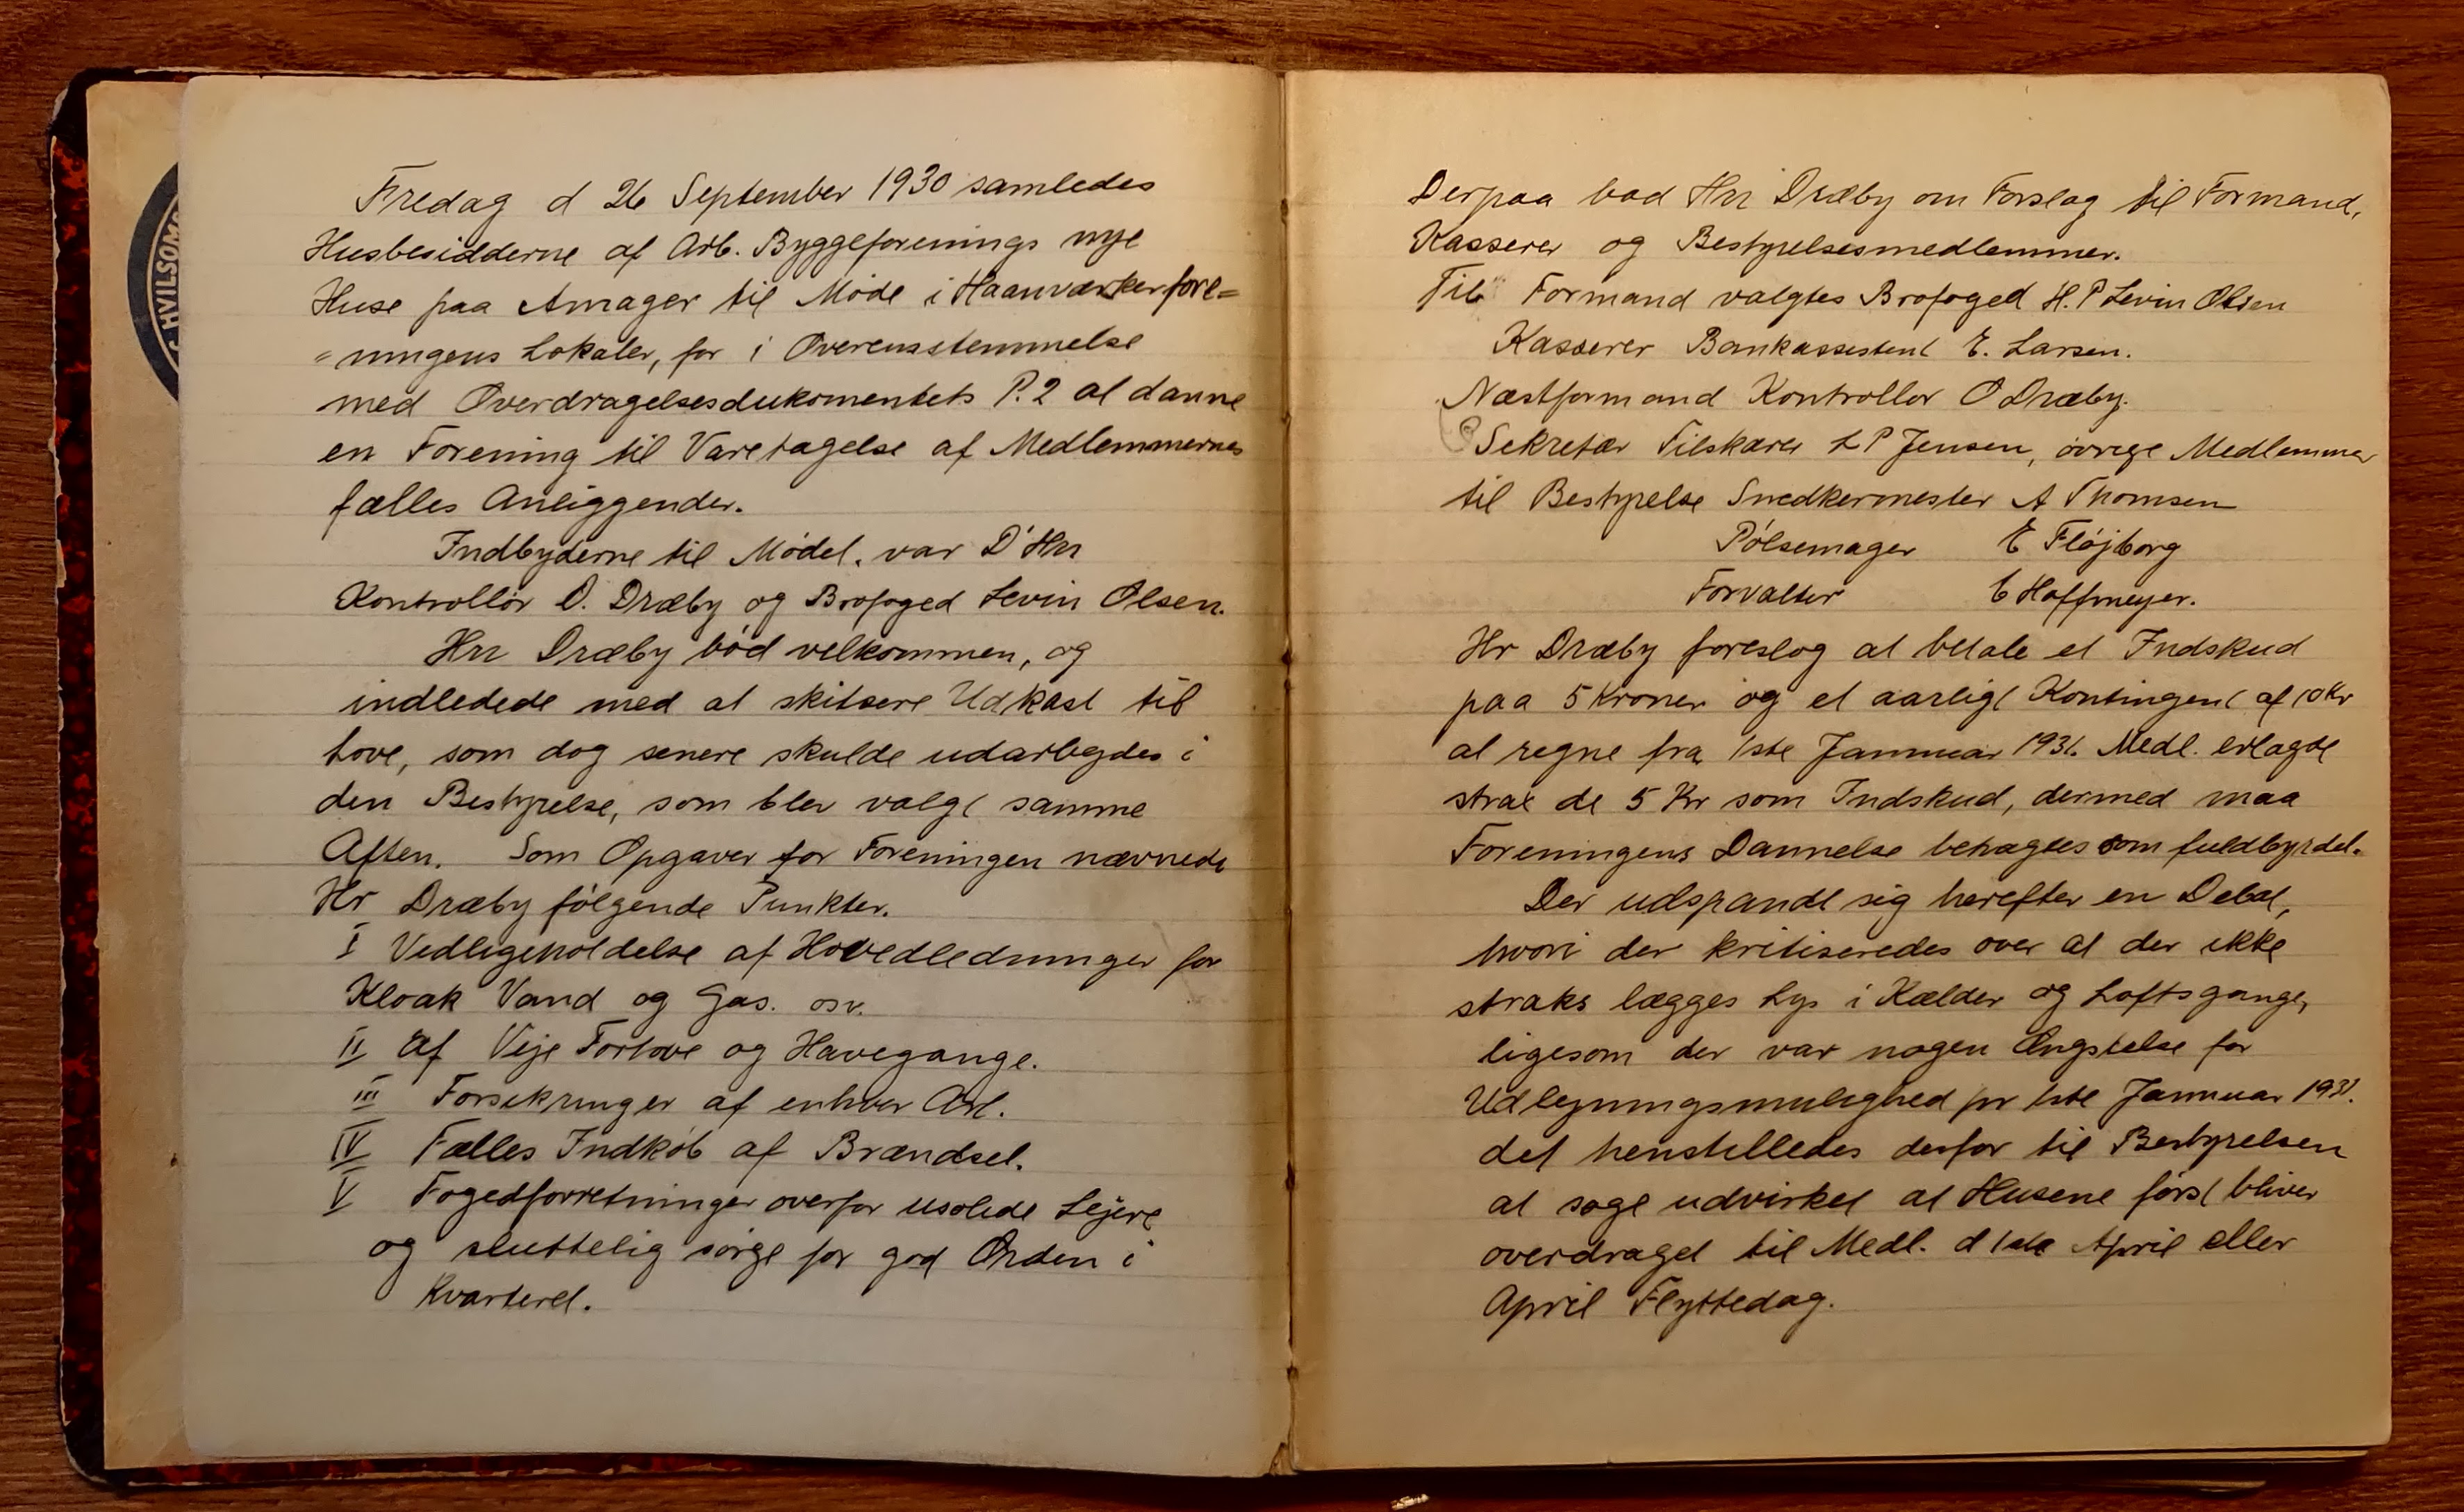 HVILSOM
Fredag d 26 September 1930 samledes
Husbesidderne af Arb. Byggeforenings nye
Huse paa Amager til Møde i Haanværkerfore=
=ningens Lokaler, for i Overensstemmelse
med Overdragelsesdukomentets P. 2 at danne
en Forening til Varetagelse af Medlemmernes
fælles Anliggender.
Indbyderne til Mødet. var D'Hrr
Kontrollør O. Dræby og Brofoged Levin Olsen.
Hrr Dræby bød velkommen, og
indledede med at skitsere Udkast til
Love, som dog senere skulde udarbejdes i
den Bestyrelse, som blev valgt samme
Aften. Som Opgaver for Foreningen nævnede
Hr Dræby følgende Punkter.
I Vedligeholdelse af Hovedledninger for
Kloak Vand og Gas. osv.
II af Veje Fortove og Havegange.
III Forsikringer af enhver Art.
IV Fælles Indkøb af Brændsel.
V Fogedforretninger overfor usolede Lejere
og sluttelig sørge for god Orden i
Kvarteret.
Derpaa bad Hrr Dræby om Forslag til Formand,
Kasserer og Bestyrelsesmedlemmer.
Til Formand valgtes Brofoged H. P Levin Olsen
Kasserer Bankassistent E. Larsen.
Næstformand Kontrollør O Dræby.
Sekretær Tilskærer L P Jensen, øvrige Medlemmer
til Bestyrelse Snedkermester A Thomsen
Pølsemager E Fløjborg
Forvalter C Hoffmeyer.
Hr Dræby foreslog at betale et Indskud
paa 5 Kroner og et aarligt Kontingent af 10 Kr
at regne fra 1ste Jannuar 1931. Medl. erlagde
strax de 5 Kr som Indskud, dermed maa
Foreningens Dannelse betragtes som fuldbyrdet.
Der udspandt sig herefter en Debat,
hvori der kritiseredes over at der ikke
straks lægges Lys i Kælder og Loftsgange,
ligesom der var nogen Ængstelse for
Udlejningsmulighed pr 1ste Jannuar 1931.
det henstilledes derfor til Bestyrelsen
at søge udvirket at Husene først bliver
overdraget til Medl. d 1ste April eller
April Flyttedag.